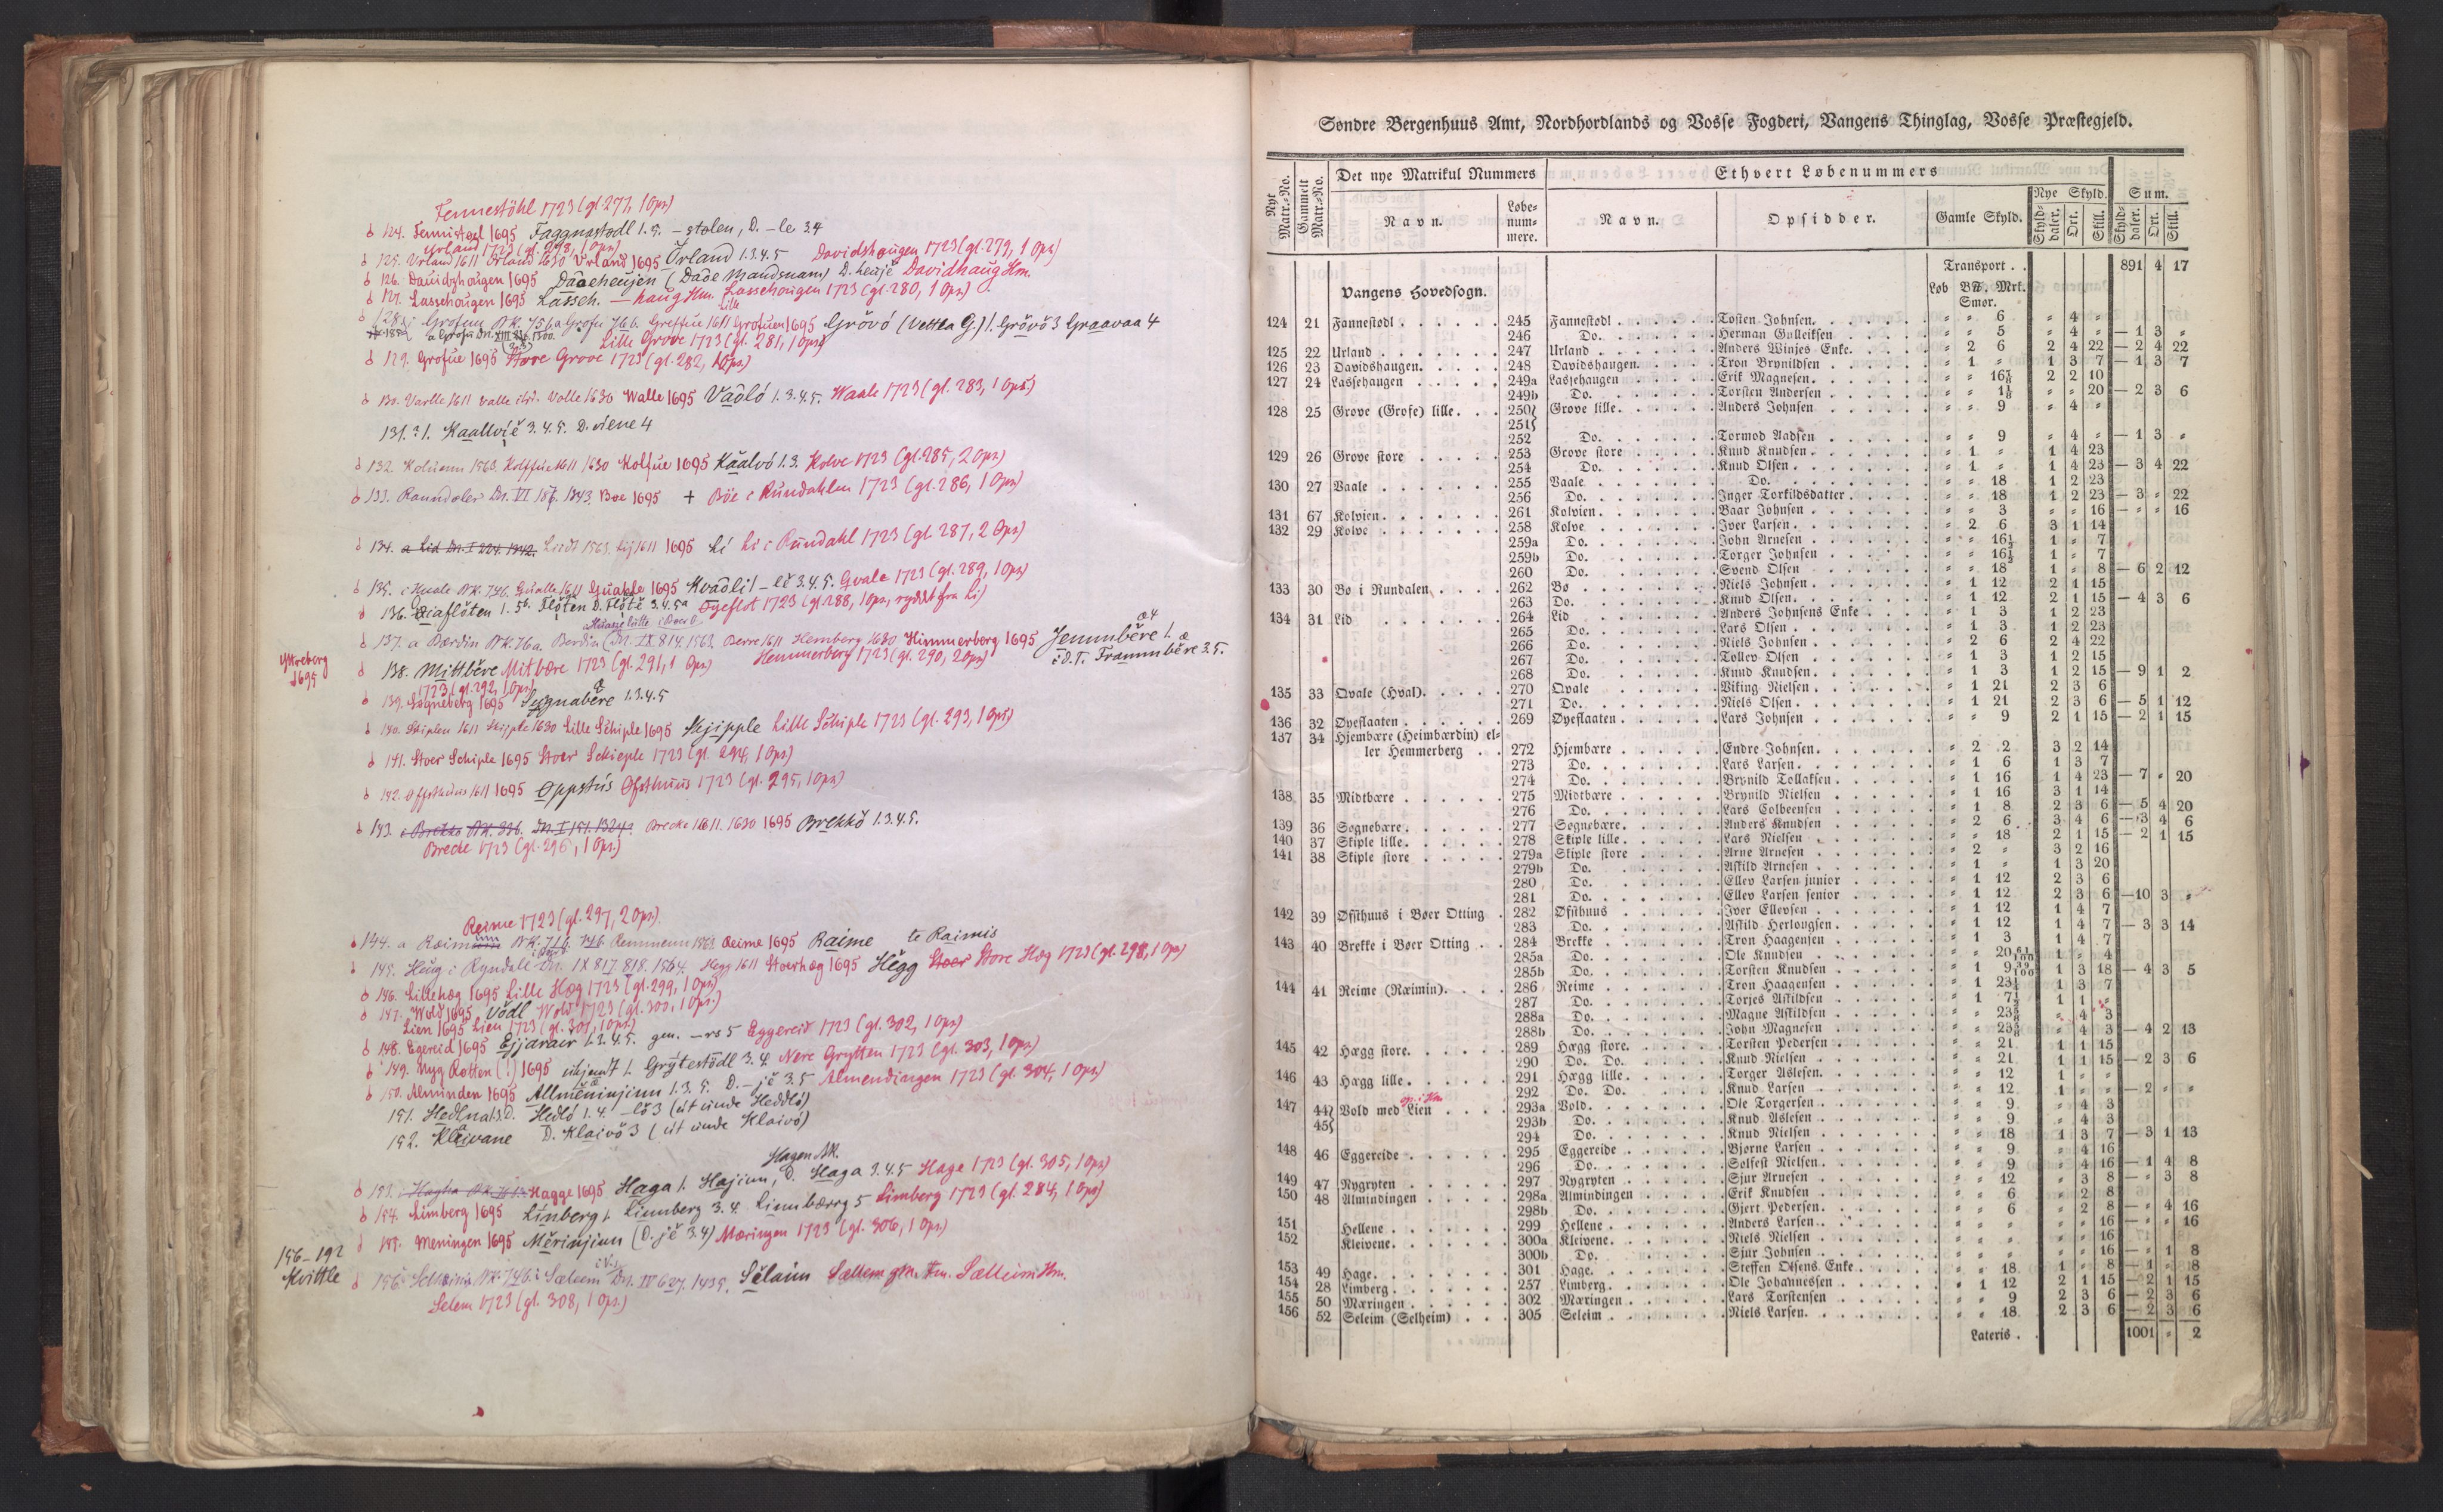 Fennestöhl 1723 (gl 277, 1 Ops)
124. Fennistoel 1695 Faggnastodl 1.5. – stolen, D. – le 3.4
Urland 1723 (gl. 278, 1 Ops)
125. Urland 1611 Ørland 1630 Urland 1695 Ørland 1.3.4.5 Davidshaugen 1723 (gl. 279, 1 Ops)
126. Dauidzhougen 1695 Daaeheujen (Dade Mandsnavn) D. heuje Davidhaug Hm.
127. Lassehougen 1695 Lasseh. – haug Hm. Lassehaugen 1723 (gl. 280, 1 Ops)
128. i Grofuu BK. 75b. a Grofu 76b. Greffue 1611 Lille Grofuen 1695 Grövó (Vettla G.) 1. Grövö 3 Graavaa 4
Lille Grove 1723 (gl. 281, 1 Ops)
129. Grofue 1695 Store Grove 1723 (gl. 282, 1 Ops)
130. Varlle 1611 Valle ibid. Volle 1630 Walle 1695 Vaöló 1.3.4.5. Waale 1723 (gl. 283, 1 Ops)
131. 1. Kaallvíë 3.4.5. D. viene 4
132. Koluenn 1563. Kolffue 1611 1630 Kolfue 1695 Kaalvó 1.3. Kolve 1723 (gl. 285, 2 Ops)
133. Raundoler Dn. VI 187. 1343. Boe 1695 + Böe i Rundahlen 1723 (gl. 286, 1 Ops)
134. a Lid Dn. I 224. 1342. Liidt 1563. Lij 1611 1695 Li Li i Rundahl 1723 (gl. 287, 2 Ops)
135. i Huale BK. 74b. Gualle 1611 Guahle 1695 Kvaölil – lë 3.4.5. Gvale 1723 (gl. 289, 1 Ops)
136. Øiaflöten 1. 5b. Flöten D. Flöte 3.4.5a Øyeflot 1723 (gl. 288, 1 Ops, ryddet fra Li)
137. a Bærdin BK. 76a. Berdin Dn. IX 814. 1563. Berre 1611 Hemberg 1630 Himmerberg 1695 Jemmbëre 1.
Hemmerberg 1723 (gl. 290, 2 Ops) i D.T. Frammbëre 3.5.
Ytreberg 1695
138. Mittbëre Mitbære 1723 (gl. 291, 1 Ops)
1723 (gl. 292, 1 Ops)
139. Sogneberg 1695 Syngnabëre 1.3.4.5
140. Skiplen 1611 Skipple 1630 Lille Schiple 1695 Skjipple Lille Schiple 1723 (gl. 293, 1 Ops)
141. Stoer Schiple 1695 Stoer Schieple 1723 (gl. 294, 1 Ops)
142. Offsthuus 1611 1695 Oppstús Øfsthuus 1723 (gl. 295, 1 Ops)
143. i Brekko BK. 336. Dn. I 151. 1324. Brecke 1611. 1630 1695 Brekkö 1.3.4.5.
Brecke 1723 (gl. 296, 1 Ops.)
Reime 1723 (gl. 297, 2 Ops).
144. a Ræim BK. 74b. Remmenn 1563 Reime 1695 Raime te Raimis
145. Heug i Ryndale Dn. IX 817 818. 1564. Hegg 1611 Stoerhæg 1695 Hëgg Store Hæg 1723 (gl. 298, 1 Ops)
146. Lillehæg 1695 Lille Hæg 1723 (gl. 299, 1 Ops)
147. Wold 1695 Vödl Wold 1723 (gl. 300, 1 Ops.)
Lien 1695 Lien 1723 (gl. 301, 1 Ops.)
148. Egereid 1695 Ejjarair 1.3.4.5. gen. – rs 5 Eggereid 1723 (gl. 302, 1 Ops)
149. Nyg Rotten (!) 1695 ukjendt 1. Grýtestödl 3.4. Nere Grytten 1723 (gl. 303, 1 Ops)
150. Alminden 1695 Allmëninjinn 1.3.5. D. – jë 3.5 Almendingen 1723 (gl. 304, 1 Ops)
151. Hedlna 1.3. D. Hedló 1.4. – lö 3 (út unde Heddló)
152. Kleivane D. Klaivö 3 (út unde Klaivó)
Hagen BK.
153. Hagha Hagge 1695 Haga 1. Hajinn, D. Haga 3.4.5 Hage 1723 (gl. 305, 1 Ops)
154. Limberg 1695 Línberg 1. Linnberg 3.4. Linnbærrg 5 Limberg 1723 (gl. 284, 1 Ops)
155. Meningen 1695 Mërinjinn (D. jë 3.4) Mæringen 1723 (gl. 306, 1 Ops)
156–192 Kvittle
156. Selheim BK. 74b. i Sæleem Dn. IV 627. 1435. Sëlaim Sællem gm. Hm. Sælleim Hm.
Selem 1723 (gl. 308, 1 Ops.)
Søndre Bergenhuus Amt, Nordhordlands og Vosse Fogderi, Vangens Thinglag, Vosse Præstegjeld.
Nyt Matr.-No. Gammelt Matr.-No. Det nye Matrikul Nummers Ethvert Løbenummers
Navn. Løbe-nummere. Navn. Opsidder. Gamle Skyld. Nye Skyld. Sum.
Skylddaler. Ort. Skill. Skylddaler. Ort. Skill.
Transport . . 891 4 17
Vangens Hovedsogn. Løb B℔. Mrk. Smør.
124 21 Fannestødl 245 Fannestødl Tosten Johnsen. " " 6 " 4 "
246 Do. Herman Gulleiksen " " 5 " 4 " — 1 3 "
125 22 Urland 247 Urland Anders Winjes Enke. " 2 6 2 4 22 — 2 4 22
126 23 Davidshaugen. 248 Davidshaugen. Tron Brynildsen " 1 " 1 3 7 — 1 3 7
127 24 Lassehaugen 249a Lassehaugen Erik Magnesen. " " 16⅞ 2 2 10
249b Do. Torsten Andersen " " 1⅛ " " 20 — 2 3 6
128 25 Grove (Grofe) lille. 250} Grove lille. Anders Johnsen " " 9 " 4 "
251}
252 Do. Tormod Aadsen " " 9 " 4 " — 1 3 "
129 26 Grove store 253 Grove store Knud Knudsen. " 1 " 1 4 23
254 Do. Knud Olsen. " 1 " 1 4 23 — 3 4 22
130 27 Vaale 255 Vaale Do. " " 18 1 2 23
256 Do. Inger Torkildsdatter " " 18 1 2 23 — 3 " 22
131 67 Kolvien. 261 Kolvien. Baar Johnsen " " 3 " " 16 — " " 16
132 29 Kolve 258 Kolve Iver Larsen. " 2 6 3 1 14
259a Do. John Arnesen " " 16½ 1 " 7
259b Do. Torger Johnsen " " 16½ 1 " 7
260 Do. Svend Olsen " " 18 1 " 8 — 6 2 12
133 30 Bø i Rundalen 262 Bø Niels Johnsen. " 1 12 2 1 15
263 Do. Knud Olsen. " 1 12 2 1 15 — 4 3 6
134 31 Lid 264 Lid Anders Johnsens Enke " 1 3 1 2 23
265 Do. Lars Olsen " 1 3 1 2 23
266 Do. Niels Johnsen " 2 6 2 4 22
267 Do. Tollev Olsen " 1 3 1 2 15
268 Do. Knud Knudsen. " 1 3 1 2 15 — 9 1 2
135 33 Qvale (Hval). 270 Qvale Viking Nielsen. " 1 21 2 3 6
271 Do. Niels Olsen. " 1 21 2 3 6 — 5 1 12
136 32 Øyeslaaten 269 Øyeslaaten. Lars Johnsen " " 9 2 1 15 — 2 1 15
137 34 Hjembære (Heimbærdin) el-
ler Hemmerberg 272 Hjembære Endre Johnsen. " 2 2 3 2 14
273 Do. Lars Larsen. " 1 6 1 3 7
274 Do. Brynild Tollaksen. " 1 16 1 4 23 — 7 " 20
138 35 Midtbære 275 Midtbære Brynild Nielsen " 1 16 3 1 14
276 Do. Lars Colbeensen " 1 8 2 3 6 — 5 4 20
139 36 Sognebære. 277 Sognebære. Anders Knudsen " 2 6 3 4 6 — 3 4 6
140 37 Skiple lille. 278 Skiple lille. Lars Nielsen " " 18 2 1 15 — 2 1 15
141 38 Skiple store 279a Skiple store Arne Arnesen " 2 " 3 2 16
279b Do. Askild Arnesen " 1 " 1 3 20
280 Do. Ellev Larsen junior " 1 12 2 3 6
281 Do. Ellev Larsen senior " 1 12 2 3 6 — 10 3 "
142 39 Øfsthuus i Bøer Otting 282 Øfsthuus Iver Ellevsen " 1 12 1 4 7
283 Do. Askild Herlougsen " 1 12 1 4 7 — 3 3 14
143 40 Brekke i Bøer Otting 284 Brekke Tron Haagensen " 1 3 1 4 7
285a Do. Ole Knudsen " " 20 61/100 1 " 4
285b Do. Torsten Knudsen " 1 9 39/100 1 3 18 — 4 3 5
144 41 Reime (Ræimin). 286 Reime Tron Haagensen " 1 23¼ 1 3 7
287 Do. Torjes Askildsen " 1 7½ 1 1 "
288a Do. Magne Askildsen " " 23⅝ " 4 3
288b Do. John Magnesen " " 23⅝ " 4 3 — 4 2 13
145 42 Hægg store. 289 Hægg store. Torsten Pedersen " " 21 1 1 15
290 Do. Do. Knud Nielsen " " 21 1 1 15 — 2 3 6
146 43 Hægg lille. 291 Hægg lille. Torger Aslesen. " " 12 1 " "
292 Do. Do. Knud Larsen " " 12 1 " " — 2 " "
147 44} 45} Vold med Lien 293a Vold. Ole Torgersen " " 9 " 4 3
293b Do. Knud Aslesen " " 9 " 4 3
294 Do. Knud Nielsen " " 18 1 3 7 — 3 1 13
148 46 Eggereide 295 Eggereide Bjørne Larsen " " 9 " 4 16
296 Do. Solfest Nielsen. " " 9 " 4 16 — 1 4 8
149 47 Nygryten 297 Nygryten Sjur Arnesen " " 12 " 3 8 — " 3 8
150 48 Almindingen 298a Almindingen Erik Knudsen " " 6 " 2 8
298b Do. Gjert Pedersen. " " 6 " 2 8 — " 4 16
151 Hellene 299 Hellene Anders Larsen. " " " " " 16 — " " 16
152 Kleivene. 300a Kleivene. Niels Nielsen " " " " " 16
300b Do. Sjur Johnsen " " " " " 16 — " 1 8
153 49 Hage. 301 Hage. Steffen Olsens Enke. " " 18 1 " 8 — 1 " 8
154 28 Limberg. 257 Limberg. Ole Johannessen " 1 12 2 1 15 — 2 1 15
155 50 Mæringen 302 Mæringen Lars Torstensen " " 9 2 3 6 — 2 3 6
156 52 Seleim (Selheim) 305 Seleim Niels Larsen. " " 18 2 3 6 — 2 3 6
Lateris . 1001 " 2